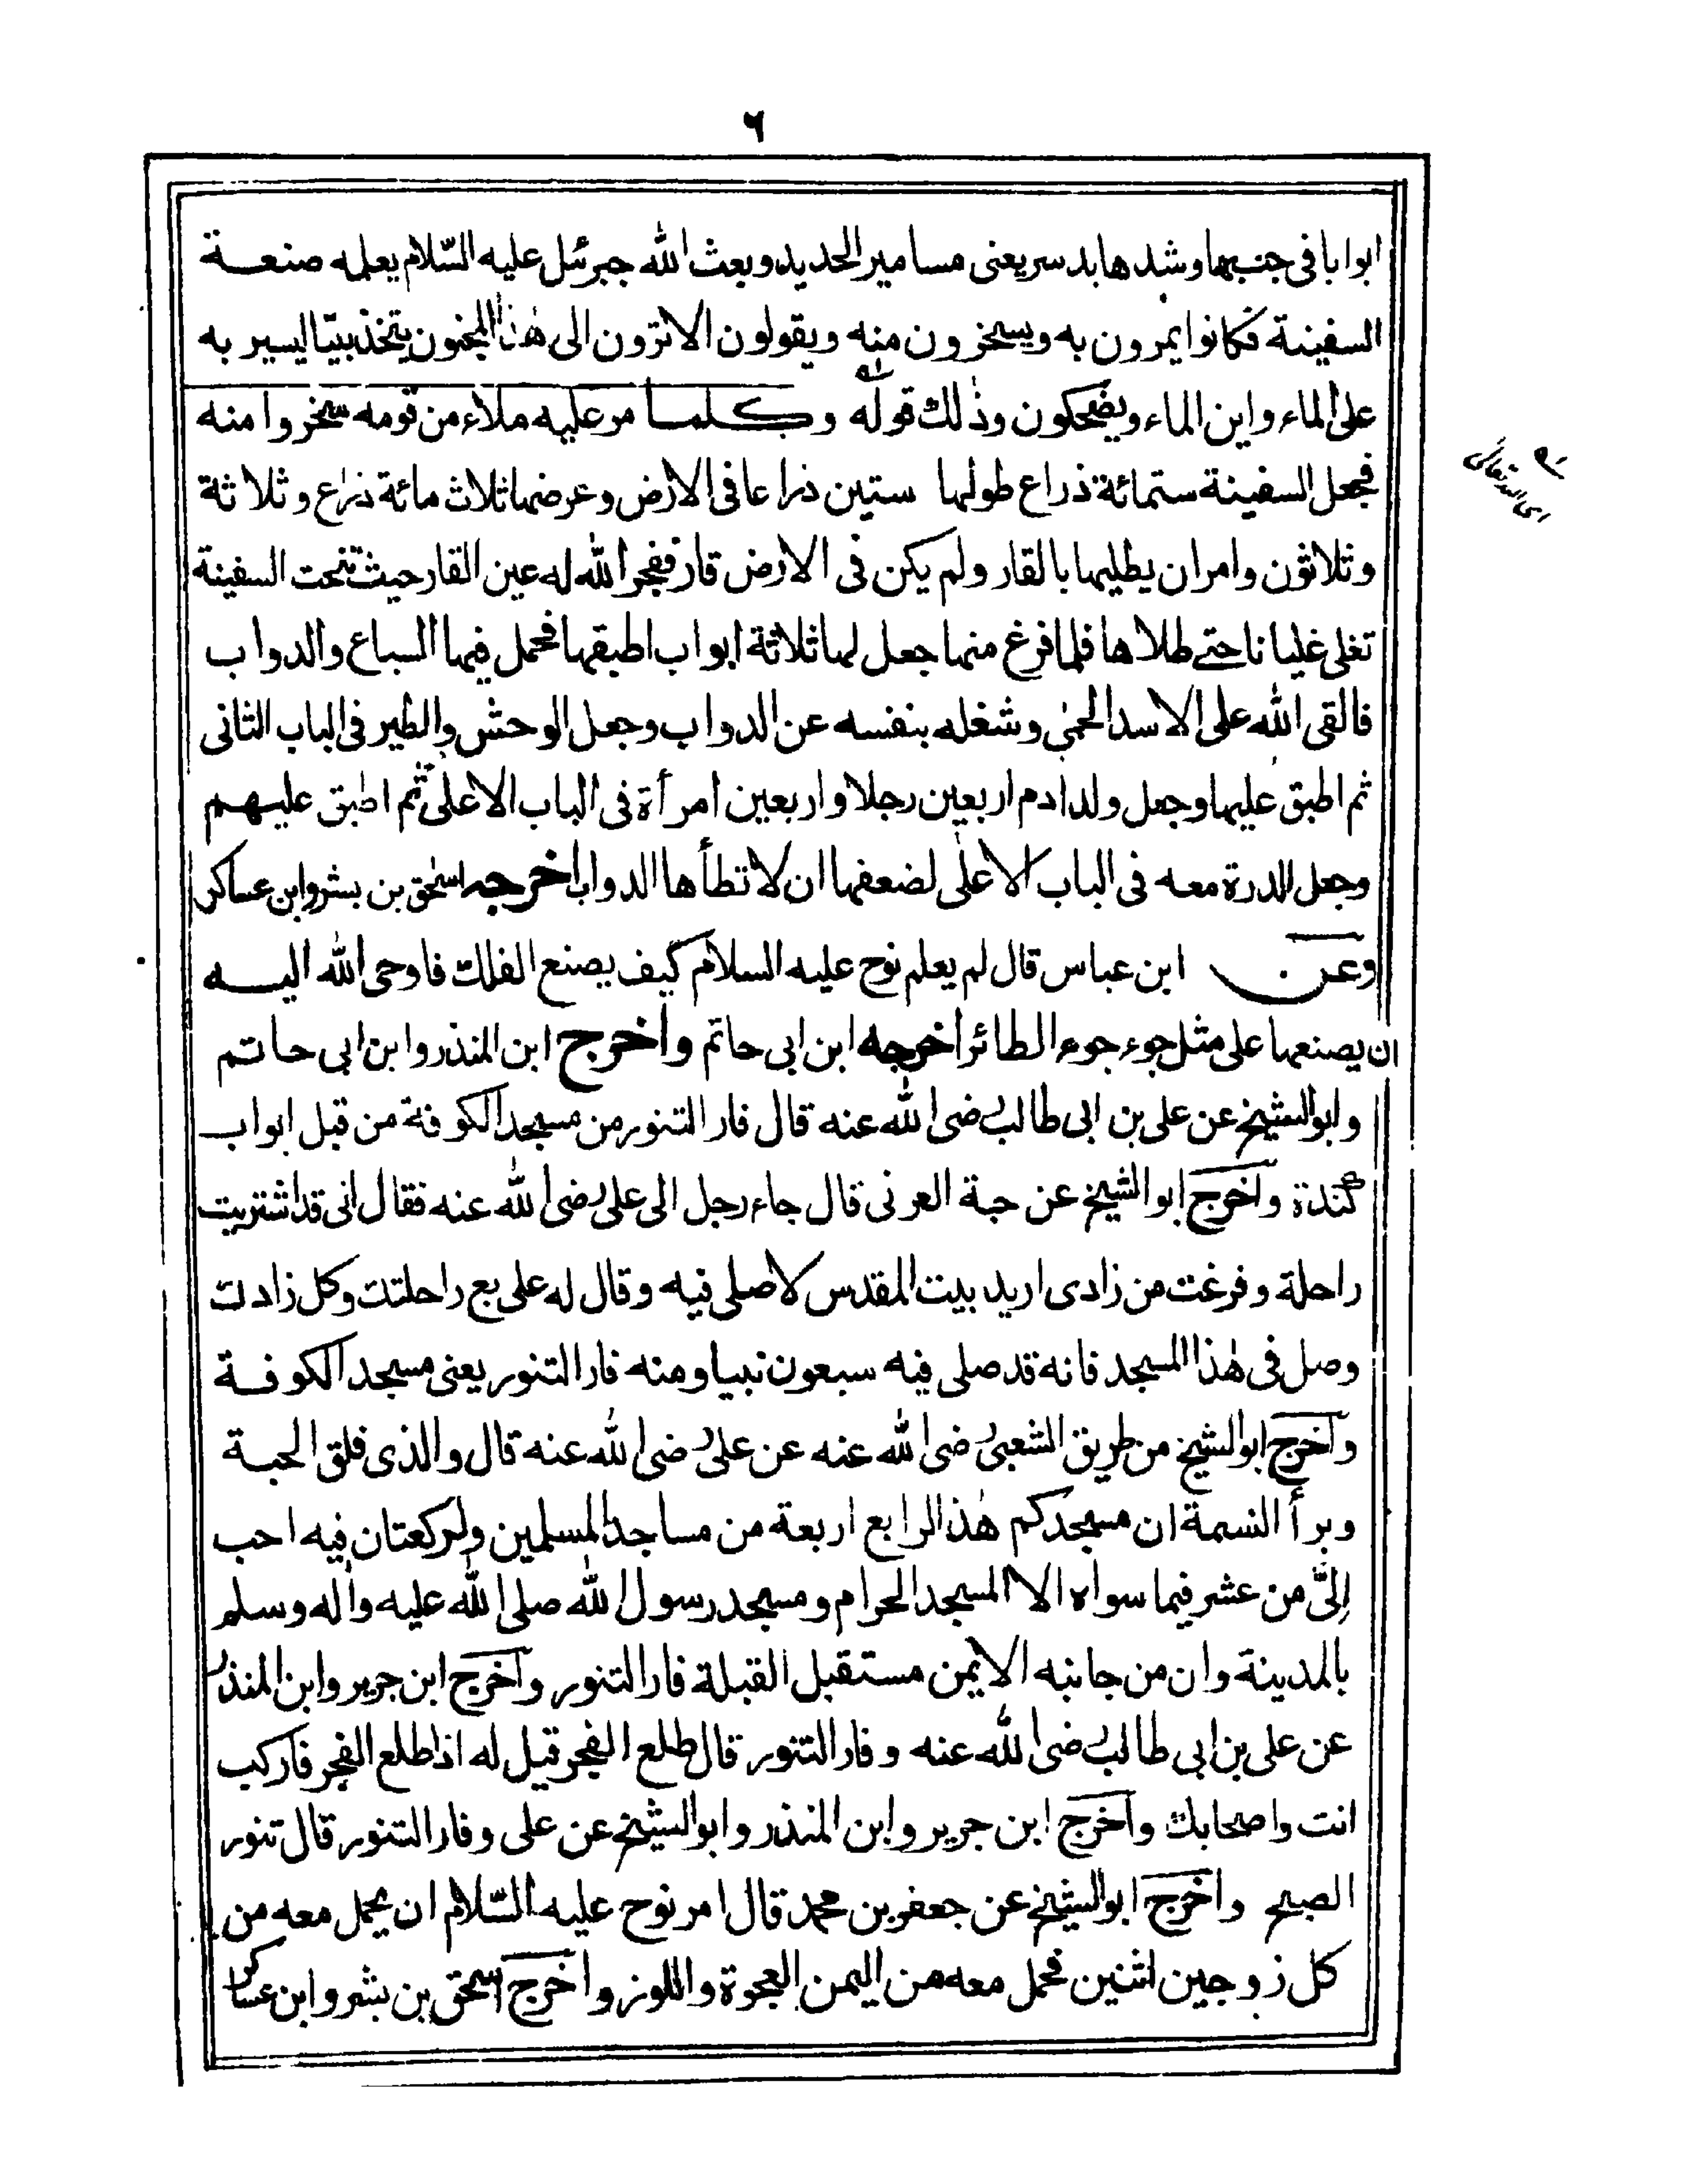 ٦
ابوابا فی جنبیها وشدها بدسر یعنی مسامیر الحدید وبعث الله جبرئل علیه السّلام یعلمه صنعة
السفینة فکانوا یمرون به ویسخرون منه ویقولون الا ترون الی هٰذا المجنون یتخذ بیتا لیسیر به
علی الماء واین الماء ویضحکون وذٰلك قوله وکلما مر علیه ملاء من قومه سخروا منه
ای الله تعالی
فجعل السفینة ستمائة ذراع طولها ستین ذراعا فی الارض وعرضها ثلاث مائة ذراع وثلاثة
وثلاثون وامر ان یطلیها بالقار ولم یکن فی الارض قار ففجر الله له عین القار حیث تنحت السفینة
تغلی غلیانا حتے طلاها فلما فرغ منها جعل لها ثلاثة ابواب اطبقها فحمل فیها السباع والدواب
فالقی الله علی الاسد الحمٰی وشغله بنفسه عن الدواب وجعل الوحش والطیر فی الباب الثانی
ثم اطبق علیها وجعل ولد ادم اربعین رجلا واربعین امرأة فی الباب الاعلی ثم اطبق علیهم
وجعل الدرة معه فی الباب الاعلٰی لضعفها ان لا تطأها الدواب اخرجه اسحٰق بن بشر وابن عساکر
وعن ابن عباس قال لم یعلم نوح علیه السلام کیف یصنع الفلك فاوحی الله الیه
ان یصنعها علی مثل جوء جوء الطائر اخرجه ابن ابی حاتم واخرج ابن المنذر وابن ابی حاتم
وابو الشیخ عن علی بن ابی طالب رضی الله عنه قال فار التنور من مسجد الکوفة من قبل ابواب
کندة واخرج ابو الشیخ عن حبة العرنی قال جاء رجل الی علی رضی الله عنه فقال انی قد اشتریت
راحلة وفرغت من زادی ارید بیت المقدس لاصلی فیه وقال له علی بع راحلتك وکل زادك
وصل فی هٰذا المسجد فانه قد صلی فیه سبعون نبیا ومنه فار التنور یعنی مسجد الکوفة
واخرج ابو الشیخ من طریق الشعبی رضی الله عنه عن علی رضی الله عنه قال والذی فلق الحبة
وبرأ النسمة ان مسجدکم هٰذا الرابع اربعة من مساجد المسلمین ولرکعتان فیه احب
اِلیَّ من عشر فیما سواه الا المسجد الحرام ومسجد رسول الله صلی الله علیه واٰله وسلم
بالمدینة وان من جانبه الایمن مستقبل القبلة فار التنور واخرج ابن جریر وابن المنذر
عن علی بن ابی طالب رضی الله عنه وفار التنور قال طلع الفجر قیل له اذا طلع الفجر فارکب
انت واصحابك واخرج ابن جریر وابن المنذر وابو الشیخ عن علی وفار التنور قال تنور
الصبح واخرج ابو الشیخ عن جعفر بن محمد قال امر نوح علیه السّلام ان یحمل معه من
کل زوجین اثنین فحمل معه من الیمن العجوة واللوز واخرج اسحٰق بن بشر وابن عساکر